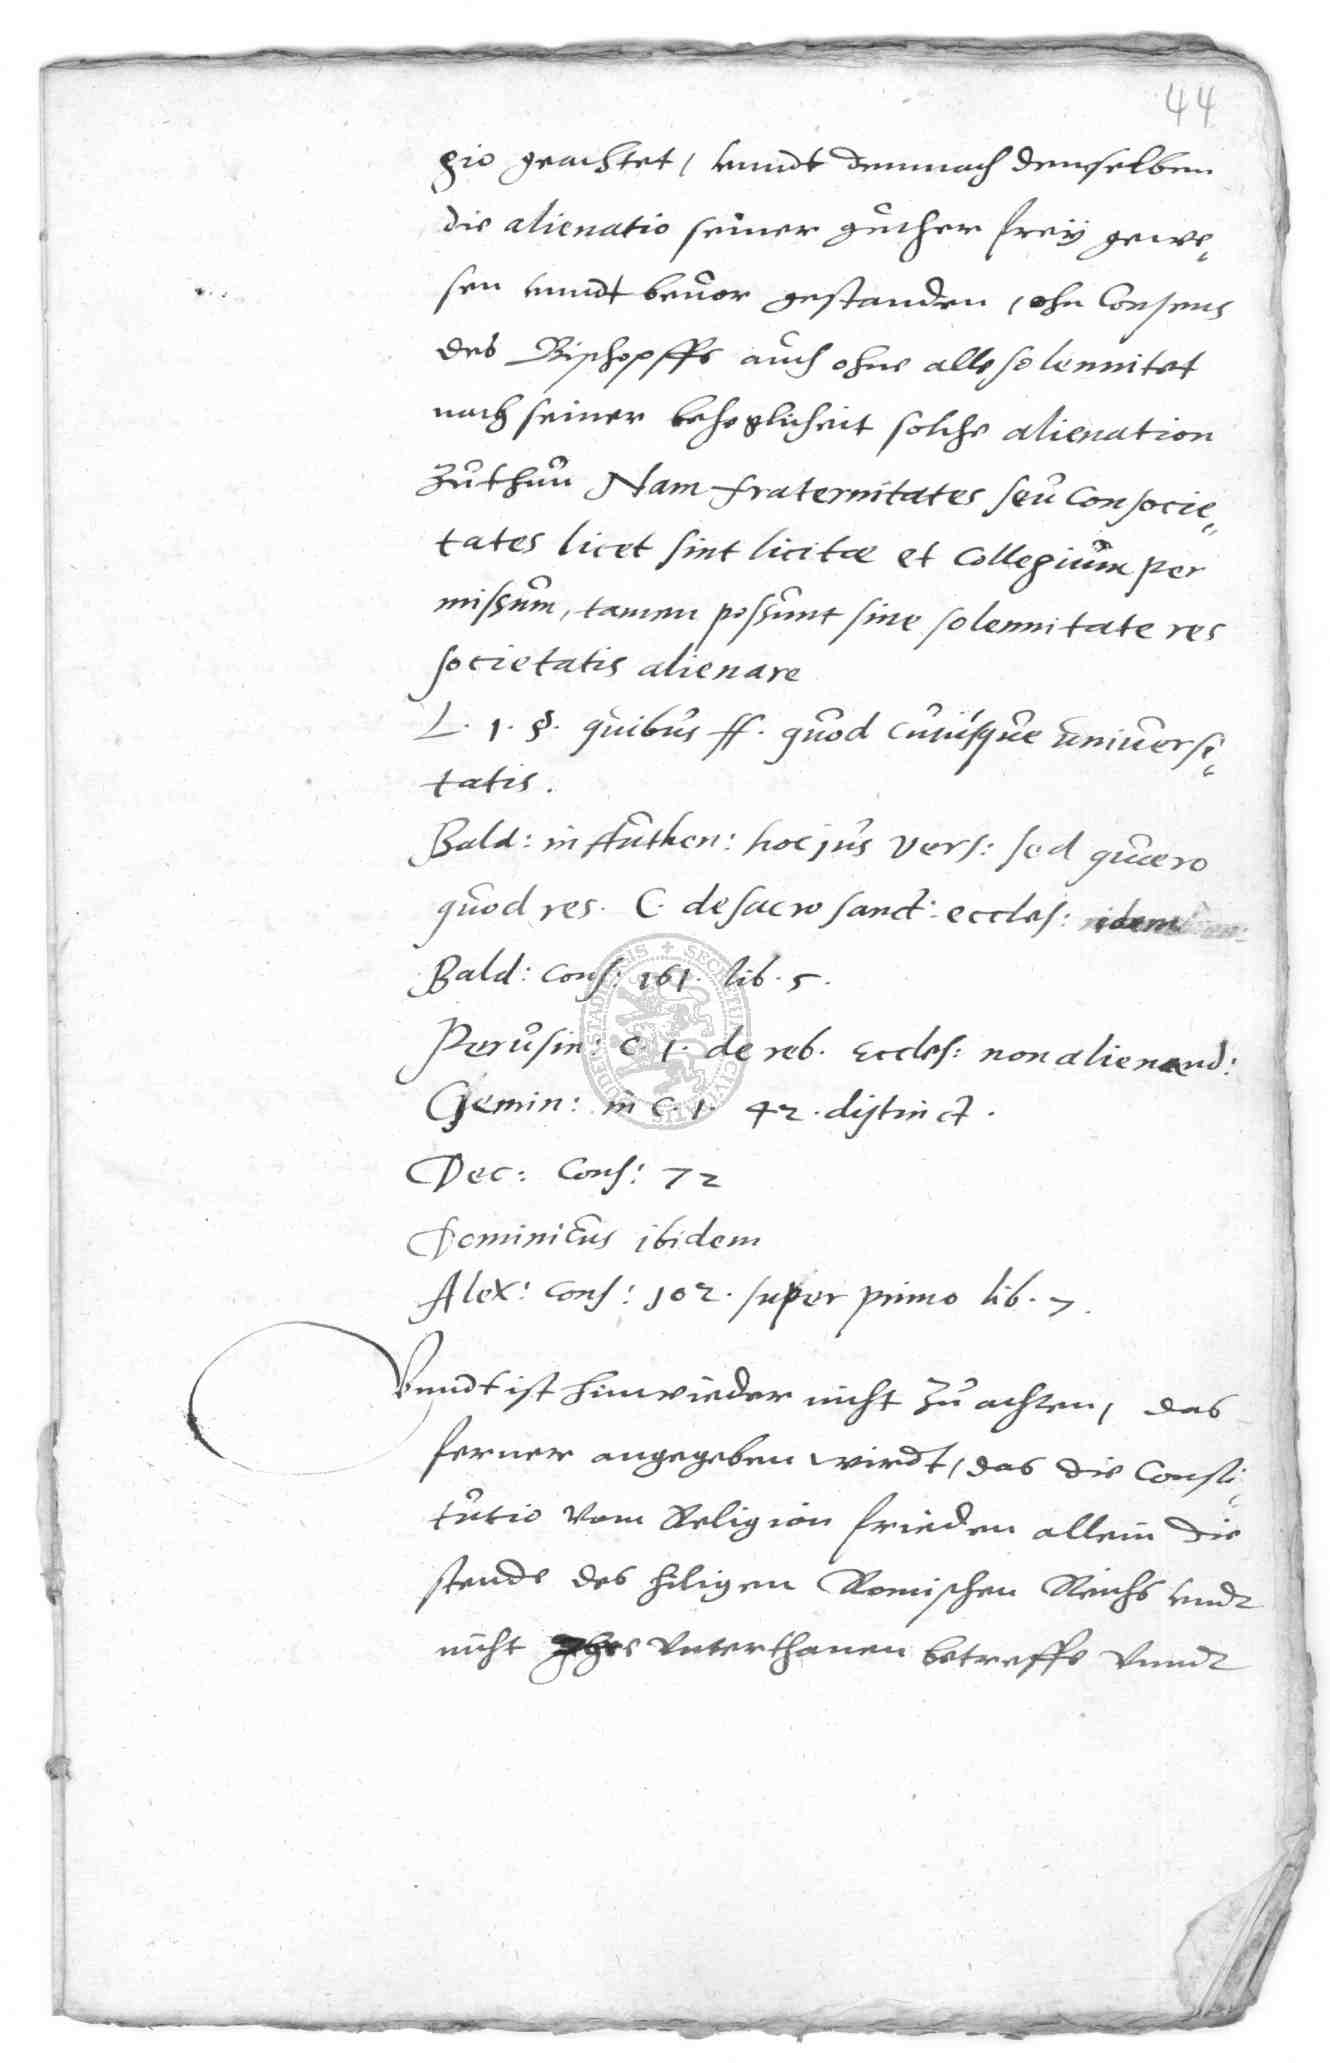 44
gio geachtet, unndt demnach denselben
die alienatio seiner güther freÿ gewe„
sen unndt beuor gestanden, ohn Consens
des Bischopffs auch ohne alle solennitet
nach seiner beheglicheit solche alienation
zuthun Nam fraternitates seu Consocie„
tates licet sint licitæ et Collegium per
missum, tamen possunt sine solennitate res
societatis alienare
L. 1. §. quibus ff. quod cuiusque uniuersi„
tatis.
Bald: in Authen: hoc jus vers: sed quæro
quod res. C. de sacro sanct: eccles: idem
Bald: Cons: 161. lib. 5.
Perusin: c. 1. de reb. Eccles: non alienand:
Gemin: in c. 1. 42. distinct.
Dec: Cons: 72
Dominicus ibidem
Alex: Cons: 102. super primo lib. 7.
Vnndt ist hinwieder nicht zu achten, das
ferner angegeben wirdt, das die Consti„
tutio vom Religion frieden allein die
stende des hiligen Romischen Reichs undt
nicht ihre Vnterthanen betreffe Vnndt
SECRETUM CIVITATIS DUDERSTADIENSIS